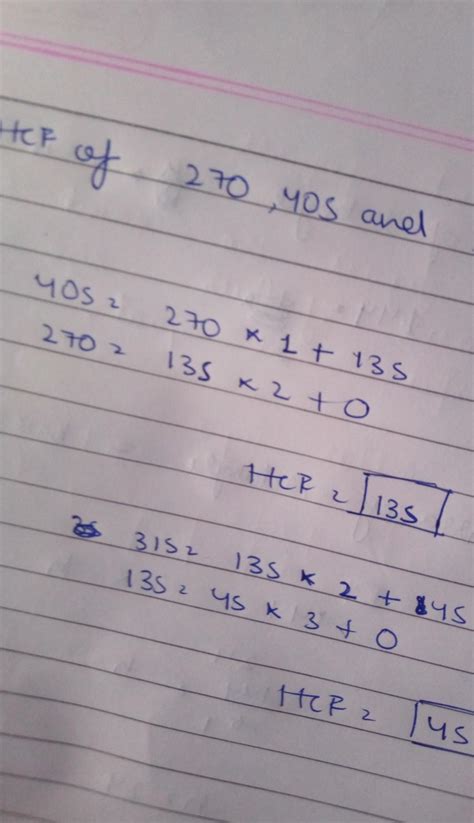 HCF of 270, 405 and
405 = 270 × 1 + 135
270 = 135 × 2 + 0
HCF = 135
315 = 135 × 2 + 45
135 = 45 × 3 + 0
HCF = 45